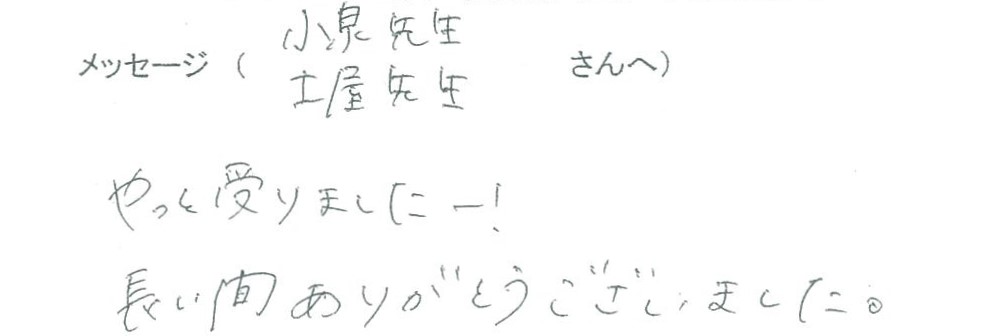 メッセージ ( 小泉先生
土屋先生 さんへ)
やっと受りましたー!
長い間ありがとうございました。